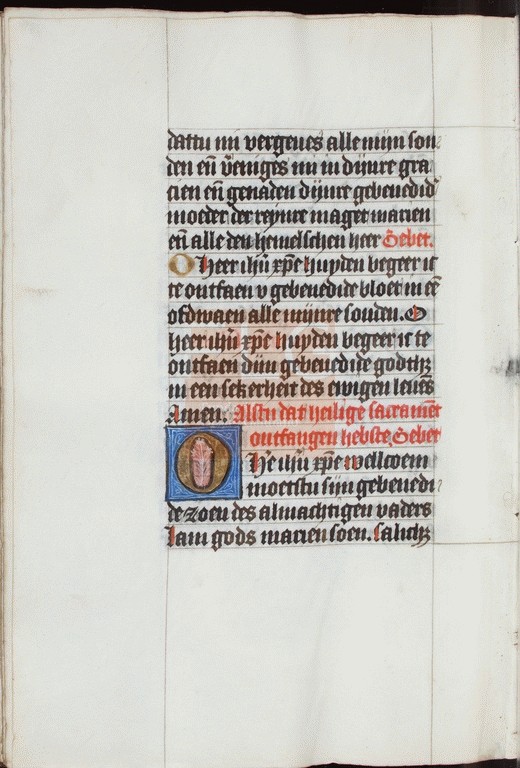 dattu mi vergeues alle mijn son
den eñ v̄eniges mi in dijnre gra
cien eñ genaden dijnre gebenedid
moeder der reynre maget marien
eñ alle den hemelschen heer Gebet.
O heer ihū xp̄e huyden begeer ic
te ontfaen v gebenedide bloet in eē
ofdwaen alle mijnre sonden. O
heer ihū xp̄e huyden begeer ic te
ontfaen dijn gebenedide godth
in een sekerheit des ewigen leuēs
Amen. Alstu dat heilige sacramēt
ontfangen hebste, Gebet
O He ihū xp̄e wellcoem
moetstu sijn gebenedi
de zoen des almachtigen vaders
Iam gods marien soen. salich